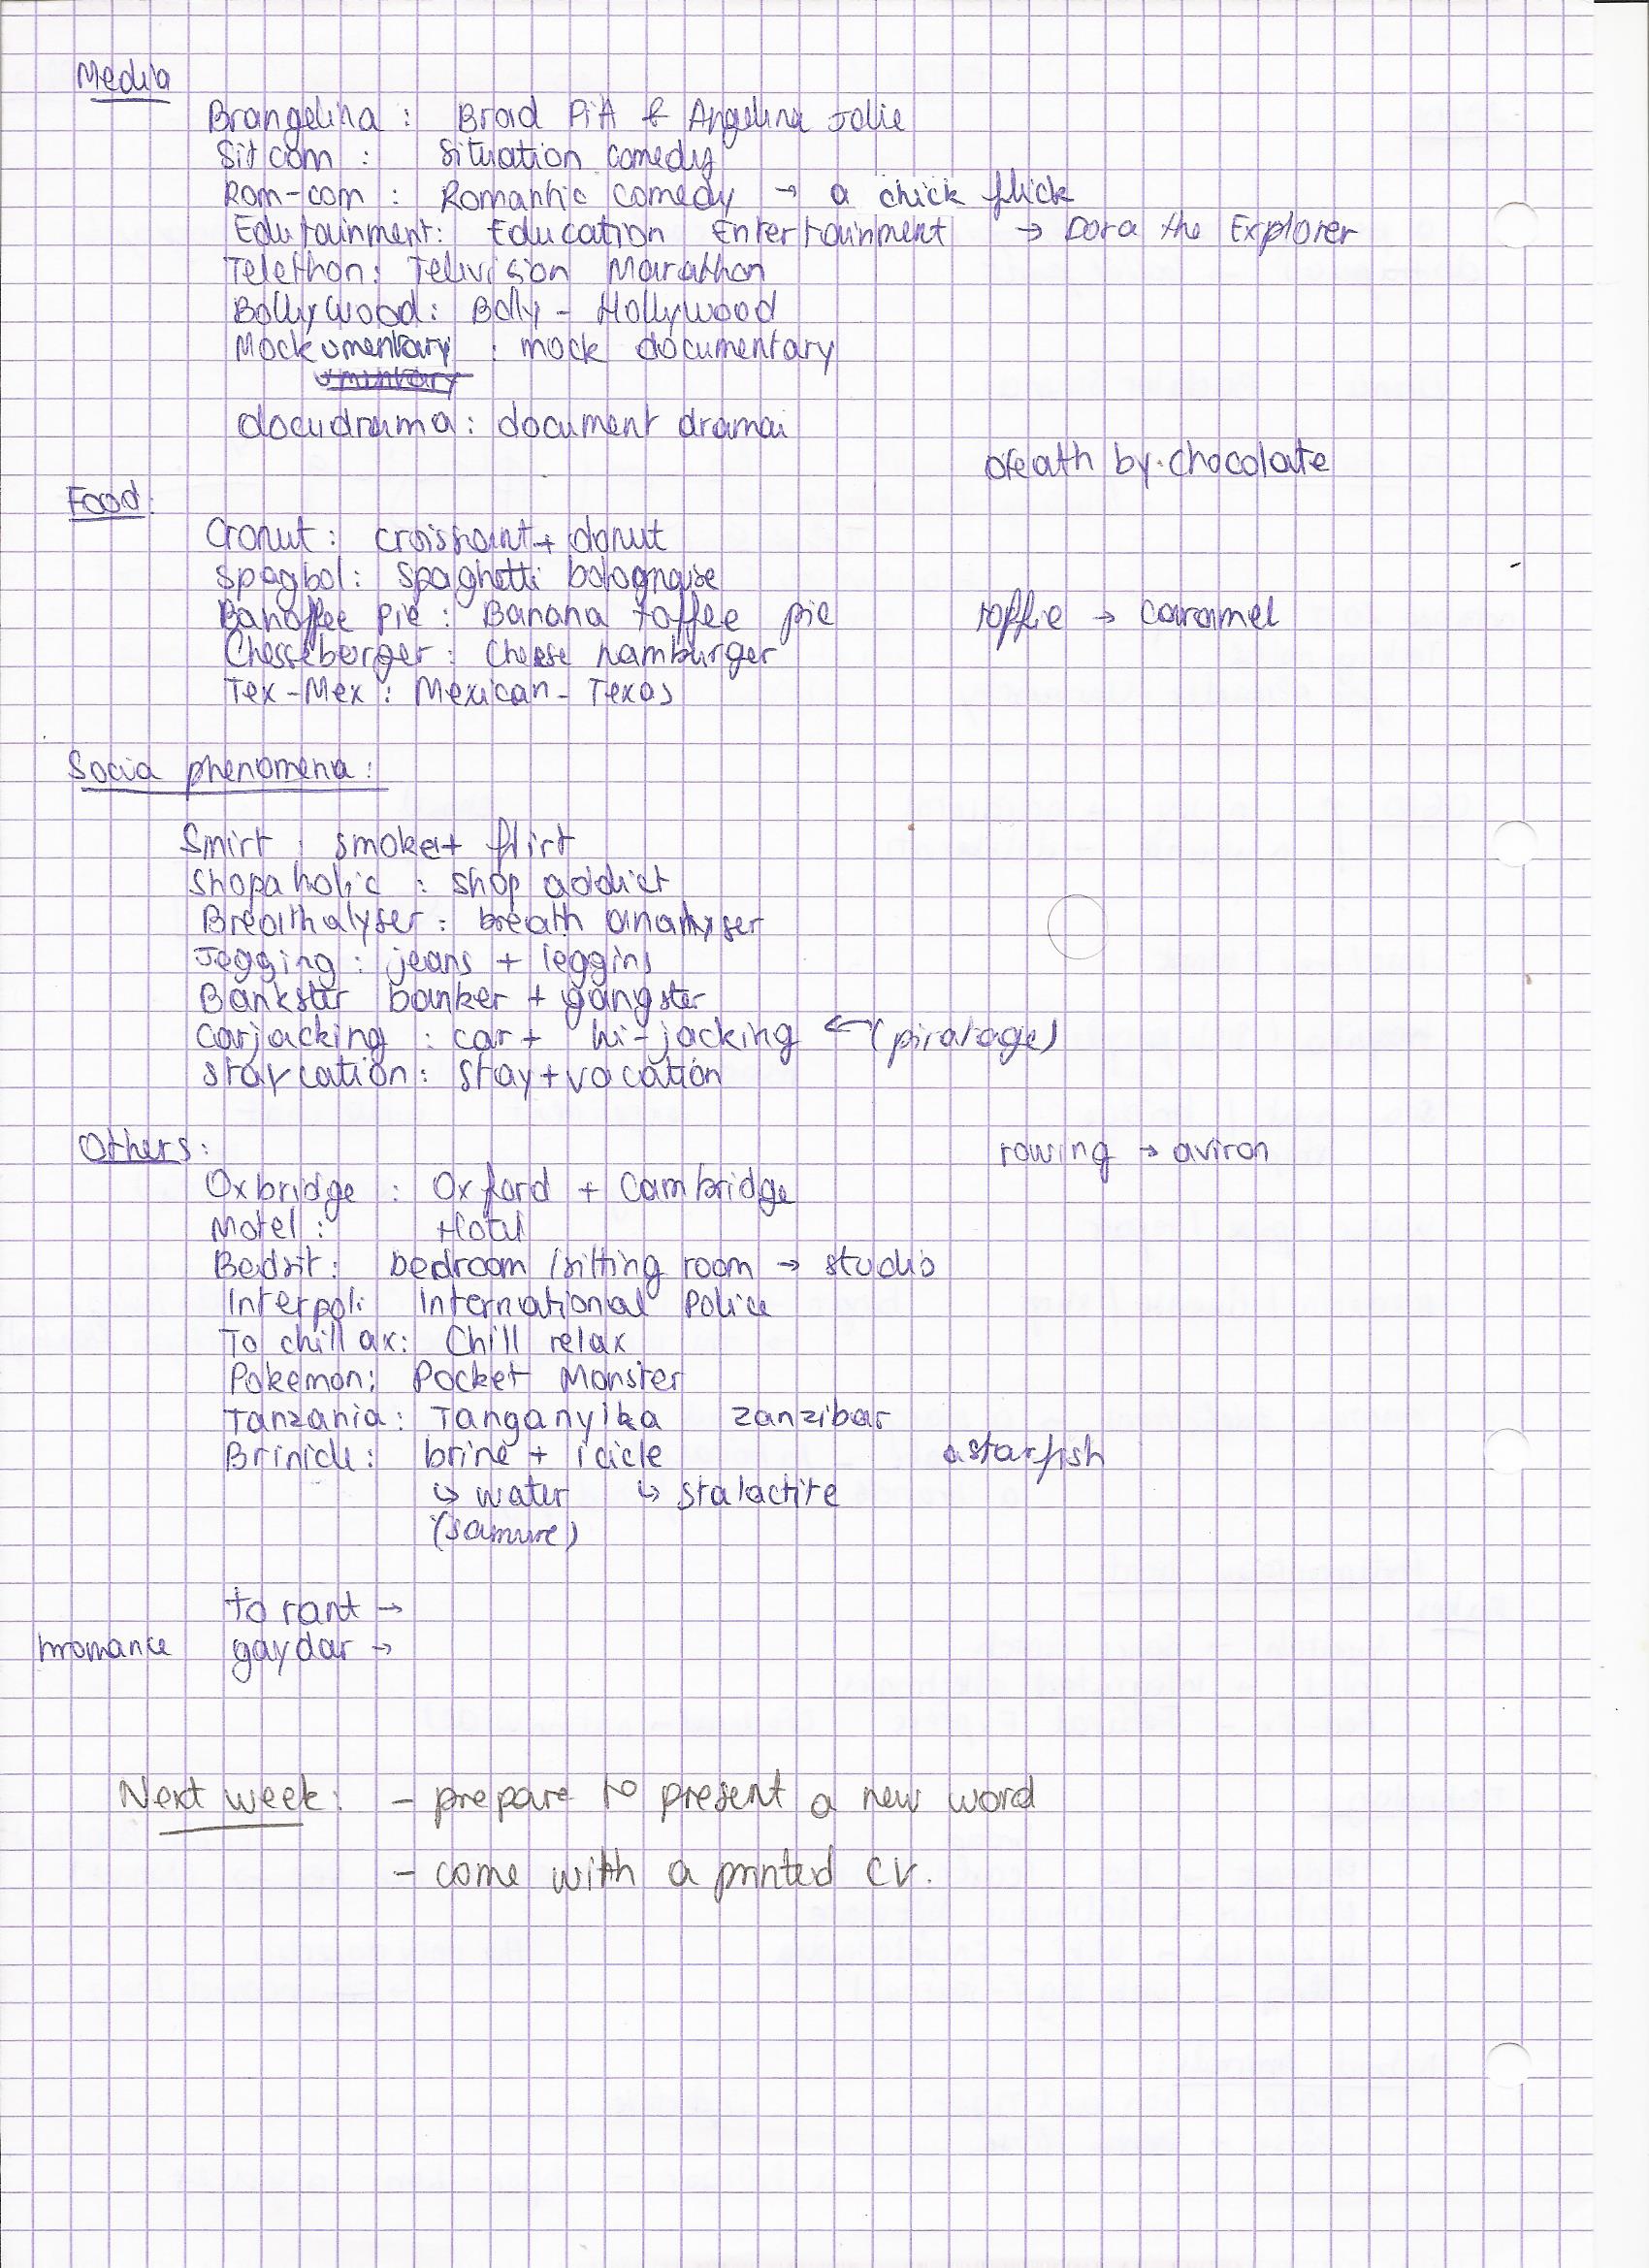 Media
Brangelina : Brad Pitt & Angelina Jolie
Sitcom : Situation comedy
Rom-com : Romantic comedy → a chick flick
Edutainment: Education Entertainment → Dora the Explorer
Telethon: Television Marathon
Bollywood: Bolly - Hollywood
Mockumentary : mock documentary
umentary
docudrama: document drama
death by chocolate
Food:
Cronut: croissant + donut
Spagbol: Spaghetti bolognaise
Banoffee pie : Banana toffee pie toffie → caramel
Chesseberger : Cheese hamburger
Tex-Mex : Mexican - Texas
Socia phenomena:
Smirt : smoke + flirt
Shopaholic : shop addict
Breathalyser : breath analyser
Jegging : jeans + leggins
Bankster banker + gangster
Carjacking : car + hi-jacking ← (piratage)
staycation : stay + vacation
Others:
rowing → aviron
Oxbridge : Oxford + Cambridge
Motel : Hotel
Bedsit: bedroom / sitting room → studio
Interpol: International Police
To chillax: Chill relax
Pokemon: Pocket Monster
Tanzania: Tanganyika Zanzibar
Brinicle: brine + icicle a starfish
↳ water ↳ stalactite
(samure)
to rant →
bromance gaydar →
Next week: - prepare to present a new word
- come with a printed CV.